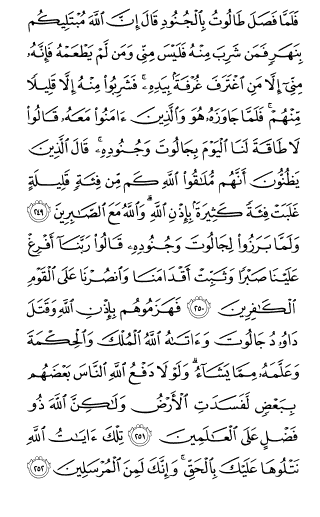 فَلَمَّا فَصَلَ طَالُوتُ بِالْجُنُودِ قَالَ إِنَّ اللَّهَ مُبْتَلِيكُم
بِنَهَرٍ فَمَن شَرِبَ مِنْهُ فَلَيْسَ مِنِّي وَمَن لَّمْ يَطْعَمْهُ فَإِنَّهُ
مِنِّي إِلَّا مَنِ اغْتَرَفَ غُرْفَةً بِيَدِهِ ۚ فَشَرِبُوا مِنْهُ إِلَّا قَلِيلًا
مِّنْهُمْ ۚ فَلَمَّا جَاوَزَهُ هُوَ وَالَّذِينَ ءَامَنُوا مَعَهُ قَالُوا
لَا طَاقَةَ لَنَا الْيَوْمَ بِجَالُوتَ وَجُنُودِهِ ۚ قَالَ الَّذِينَ
يَظُنُّونَ أَنَّهُم مُّلَاقُوا اللَّهِ كَم مِّن فِئَةٍ قَلِيلَةٍ
غَلَبَتْ فِئَةً كَثِيرَةً بِإِذْنِ اللَّهِ ۗ وَاللَّهُ مَعَ الصَّابِرِينَ ٢٤٩
وَلَمَّا بَرَزُوا لِجَالُوتَ وَجُنُودِهِ قَالُوا رَبَّنَا أَفْرِغْ
عَلَيْنَا صَبْرًا وَثَبِّتْ أَقْدَامَنَا وَانصُرْنَا عَلَى الْقَوْمِ
الْكَافِرِينَ ٢٥٠ فَهَزَمُوهُم بِإِذْنِ اللَّهِ وَقَتَلَ
دَاوُدُ جَالُوتَ وَءَاتَاهُ اللَّهُ الْمُلْكَ وَالْحِكْمَةَ
وَعَلَّمَهُ مِمَّا يَشَاءُ ۗ وَلَوْلَا دَفْعُ اللَّهِ النَّاسَ بَعْضَهُم
بِبَعْضٍ لَّفَسَدَتِ الْأَرْضُ وَلَٰكِنَّ اللَّهَ ذُو
فَضْلٍ عَلَى الْعَالَمِينَ ٢٥١ تِلْكَ ءَايَاتُ اللَّهِ
نَتْلُوهَا عَلَيْكَ بِالْحَقِّ ۚ وَإِنَّكَ لَمِنَ الْمُرْسَلِينَ ٢٥٢